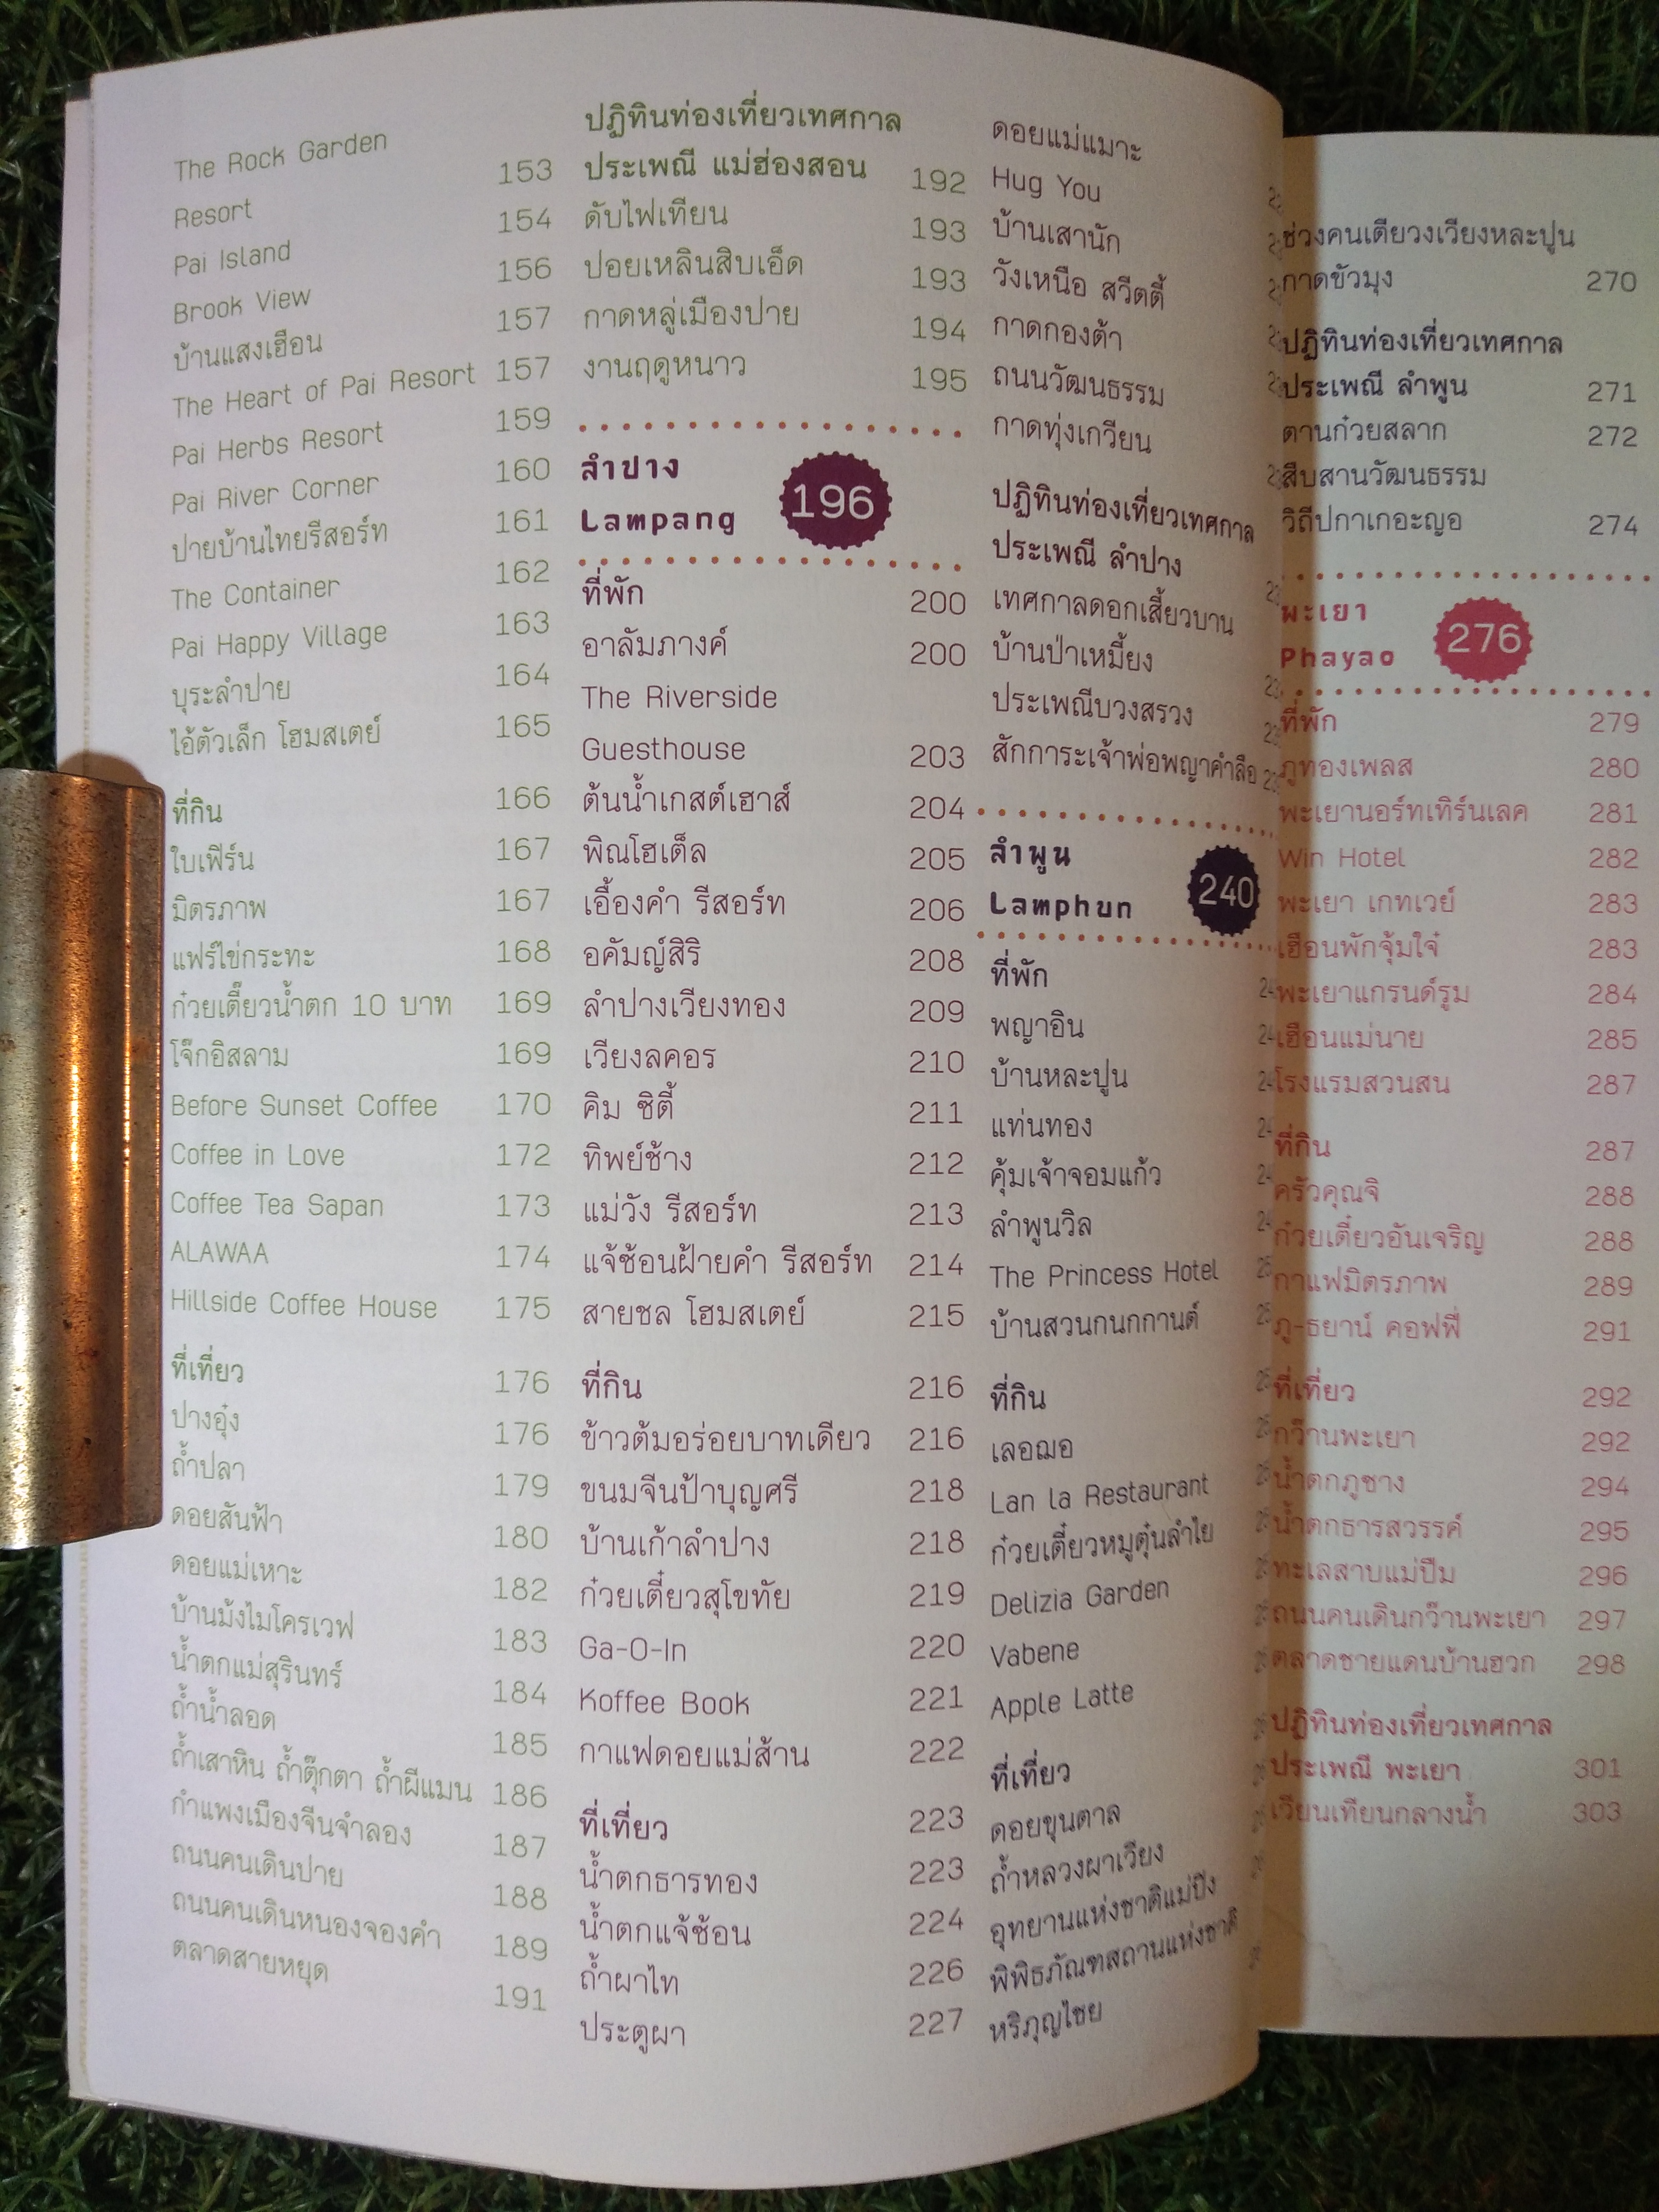 The Rock Garden
Resort 153
Pai Island 154
Brook View 156
บ้านแสงเฮือน 157
The Heart of Pai Resort 157
Pai Herbs Resort 159
Pai River Corner 160
ปายบ้านไทยรีสอร์ท 161
The Container 162
Pai Happy Village 163
บุระลำปาย 164
ไอ้ตัวเล็ก โฮมสเตย์ 165
ที่กิน 166
ใบเฟิร์น 167
มิตรภาพ 167
แฟร์ไข่กระทะ 168
ก๋วยเตี๊ยวน้ำตก 10 บาท 169
โจ๊กอิสลาม 169
Before Sunset Coffee 170
Coffee in Love 172
Coffee Tea Sapan 173
ALAWAA 174
Hillside Coffee House 175
ที่เที่ยว 176
ปางอุ๋ง 176
ถ้ำปลา 179
ดอยสันฟ้า 180
ดอยแม่เหาะ 182
บ้านม้งไมโครเวฟ 183
น้ำตกแม่สุรินทร์ 184
ถ้ำน้ำลอด 185
ถ้ำเสาหิน ถ้ำตุ๊กตา ถ้ำผีแมน 186
กำแพงเมืองจีนจำลอง 187
ถนนคนเดินปาย 188
ถนนคนเดินหนองจองคำ 189
ตลาดสายหยุด 191
ปฏิทินท่องเที่ยวเทศกาล
ประเพณี แม่ฮ่องสอน 192
ดับไฟเทียน 193
ปอยเหลินสิบเอ็ด 193
กาดหลู่เมืองปาย 194
งานฤดูหนาว 195
ลำปาง
Lampang 196
ที่พัก 200
อาลัมภางค์ 200
The Riverside
Guesthouse 203
ต้นน้ำเกสต์เฮาส์ 204
พิณโฮเต็ล 205
เอื้องคำ รีสอร์ท 206
อคัมญ์สิริ 208
ลำปางเวียงทอง 209
เวียงลคอร 210
คิม ซิตี้ 211
ทิพย์ช้าง 212
แม่วัง รีสอร์ท 213
แจ้ซ้อนฝ้ายคำ รีสอร์ท 214
สายชล โฮมสเตย์ 215
ที่กิน 216
ข้าวต้มอร่อยบาทเดียว 216
ขนมจีนป้าบุญศรี 218
บ้านเก้าลำปาง 218
ก๋วยเตี๋ยวสุโขทัย 219
Ga-O-In 220
Koffee Book 221
กาแฟดอยแม่ส้าน 222
ที่เที่ยว 223
น้ำตกธารทอง 223
น้ำตกแจ้ซ้อน 224
ถ้ำผาไท 226
ประตูผา 227
ดอยแม่แมาะ
Hug You
บ้านเสานัก
วังเหนือ สวีตตี้
กาดกองต้า
ถนนวัฒนธรรม
กาดทุ่งเกวียน
ปฏิทินท่องเที่ยวเทศกาล
ประเพณี ลำปาง
เทศกาลดอกเสี้ยวบาน
บ้านป่าเหมี้ยง
ประเพณีบวงสรวง
สักการะเจ้าพ่อพญาคำลือ
ลำพูน
Lamphun 240
ที่พัก
พญาอิน
บ้านหละปูน
แท่นทอง
คุ้มเจ้าจอมแก้ว
ลำพูนวิล
The Princess Hotel
บ้านสวนกนกกานต์
ที่กิน
เลอฌอ
Lan la Restaurant
ก๋วยเตี๋ยวหมูตุ๋นลำไย
Delizia Garden
Vabene
Apple Latte
ที่เที่ยว
ดอยขุนตาล
ถ้ำหลวงผาเวียง
อุทยานแห่งชาติแม่ปิง
พิพิธภัณฑสถานแห่งชาติ
หริภุญไชย
ช่วงคนเดียวงเวียงหละปูน
กาดขัวมุง 270
ปฏิทินท่องเที่ยวเทศกาล
ประเพณี ลำพูน 271
ตานก๋วยสลาก 272
สืบสานวัฒนธรรม
วิถีปกาเกอะญอ 274
พะเยา
Phayao 276
ที่พัก 279
ภูทองเพลส 280
พะเยานอร์ทเทิร์นเลค 281
Win Hotel 282
พะเยา เกทเวย์ 283
เฮือนพักจุ้มใจ๋ 283
พะเยาแกรนด์รูม 284
เฮือนแม่นาย 285
โรงแรมสวนสน 287
ที่กิน 287
ครัวคุณจิ 288
ก๋วยเตี๋ยวอันเจริญ 288
กาแฟมิตรภาพ 289
ภู-ธยาน์ คอฟฟี่ 291
ที่เที่ยว 292
กว๊านพะเยา 292
น้ำตกภูซาง 294
น้ำตกธารสวรรค์ 295
ทะเลสาบแม่ปืม 296
ถนนคนเดินกว๊านพะเยา 297
ตลาดชายแดนบ้านฮวก 298
ปฏิทินท่องเที่ยวเทศกาล
ประเพณี พะเยา 301
เวียนเทียนกลางน้ำ 303